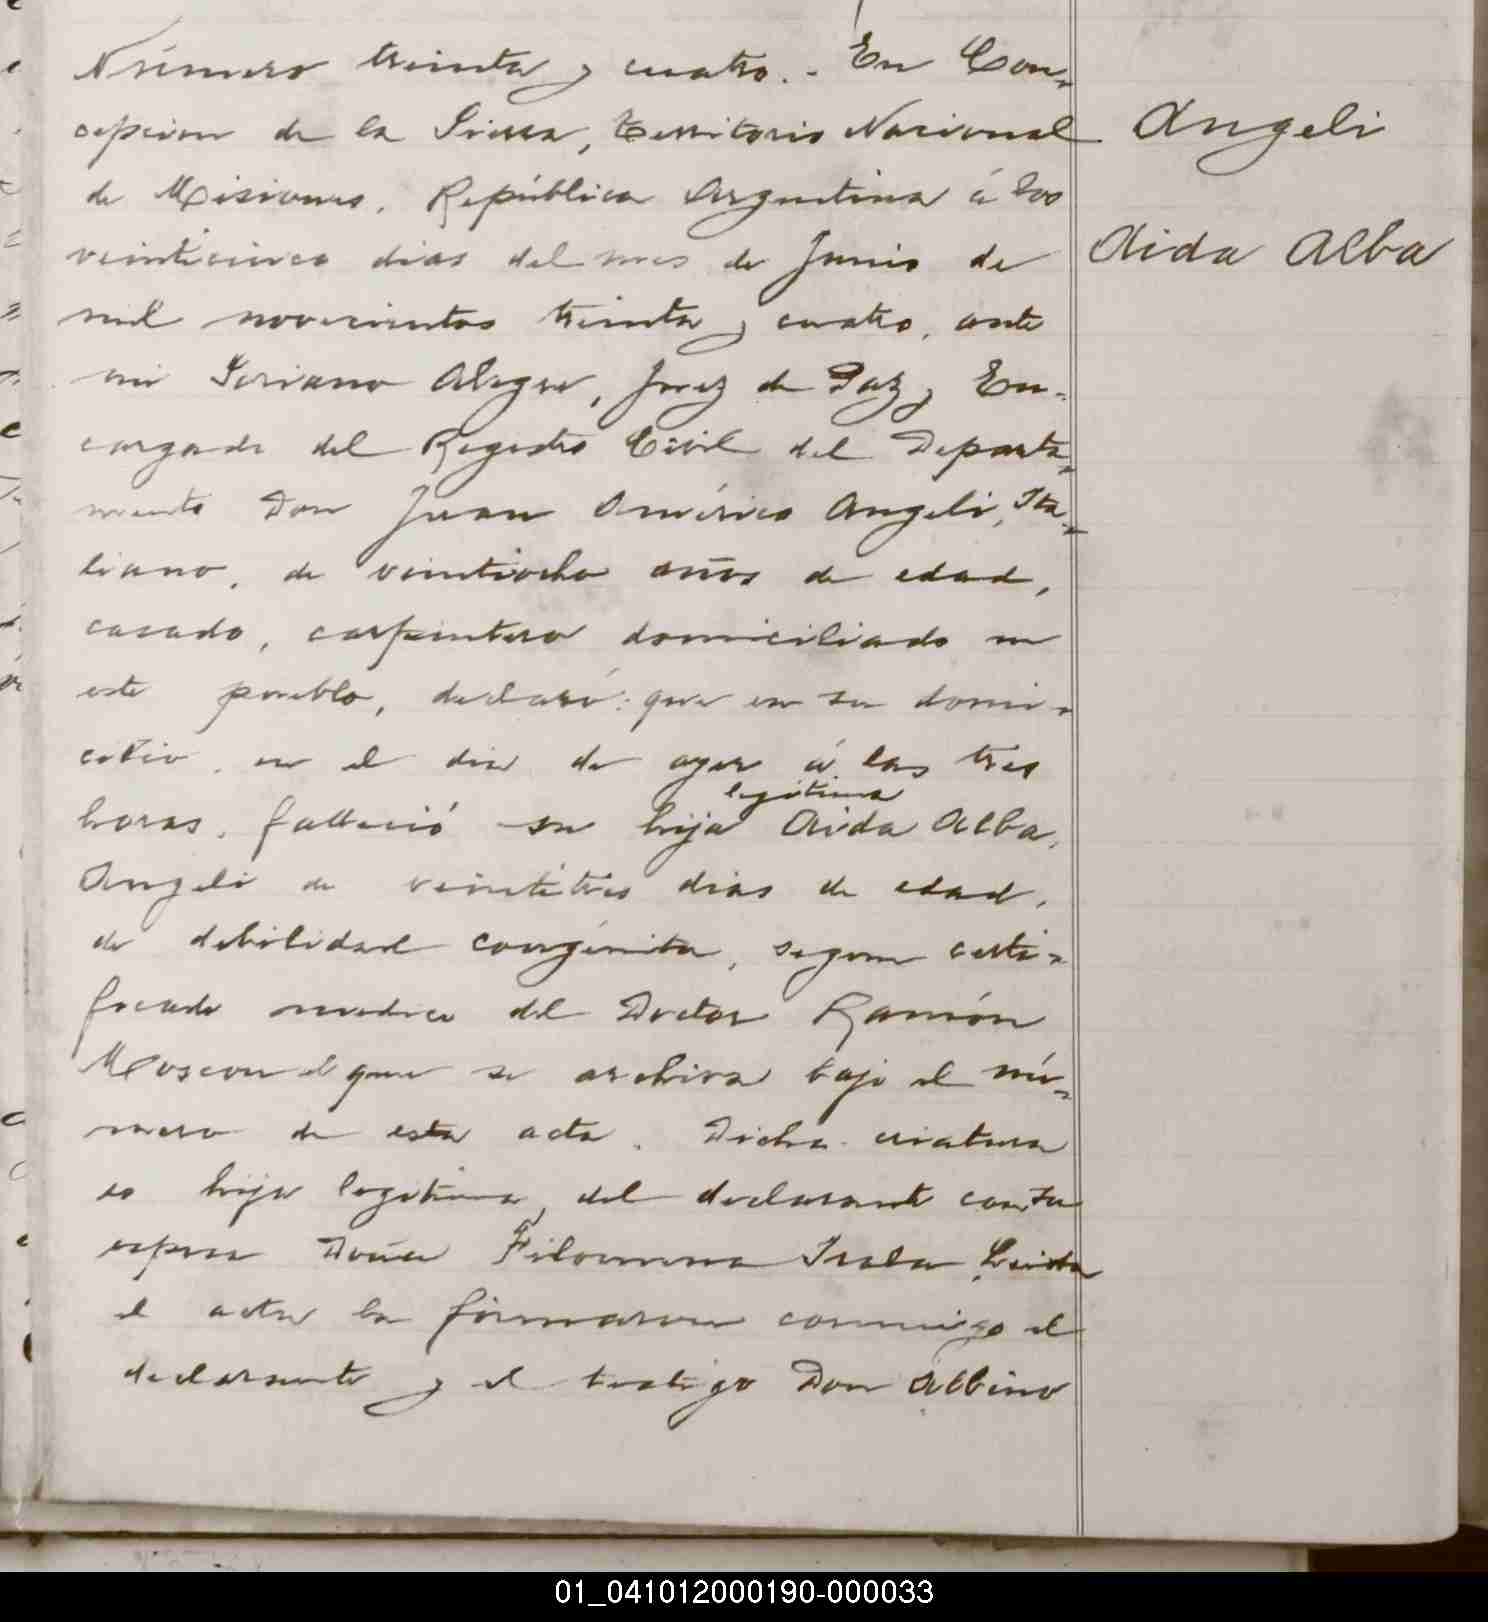 Número treinta y cuatro. - En Con-
cepcion de la Sierra, Territorio Nacional
de Misiones, República Argentina á los
veinticinco dias del mes de Junio de
mil novecientos treinta y cuatro, ante
mi Soriano Alegre, Juez de Paz y En-
cargado del Registro Civil del Departa-
mento Don Juan Américo Angeli, Ita-
liano, de veintiocho años de edad,
casado, carpintero domiciliado en
este pueblo, declaró: que en su domi-
cilio, en el dia de ayer á las tres
legitima
horas, falleció su hija Aida Alba,
Angeli de veintitres dias de edad,
de debilidad congénita, segun certi-
ficado medico del Doctor Ramón
el que se archiva bajo el nú-
mero de esta acta. Dicha criatura
es hija legitima del declarante con su
esposa Doña Filomena Leida
el acta la firmaron conmigo el
declarante y el testigo Don Albino
Angeli
Aida Alba
01_041012000190-000033